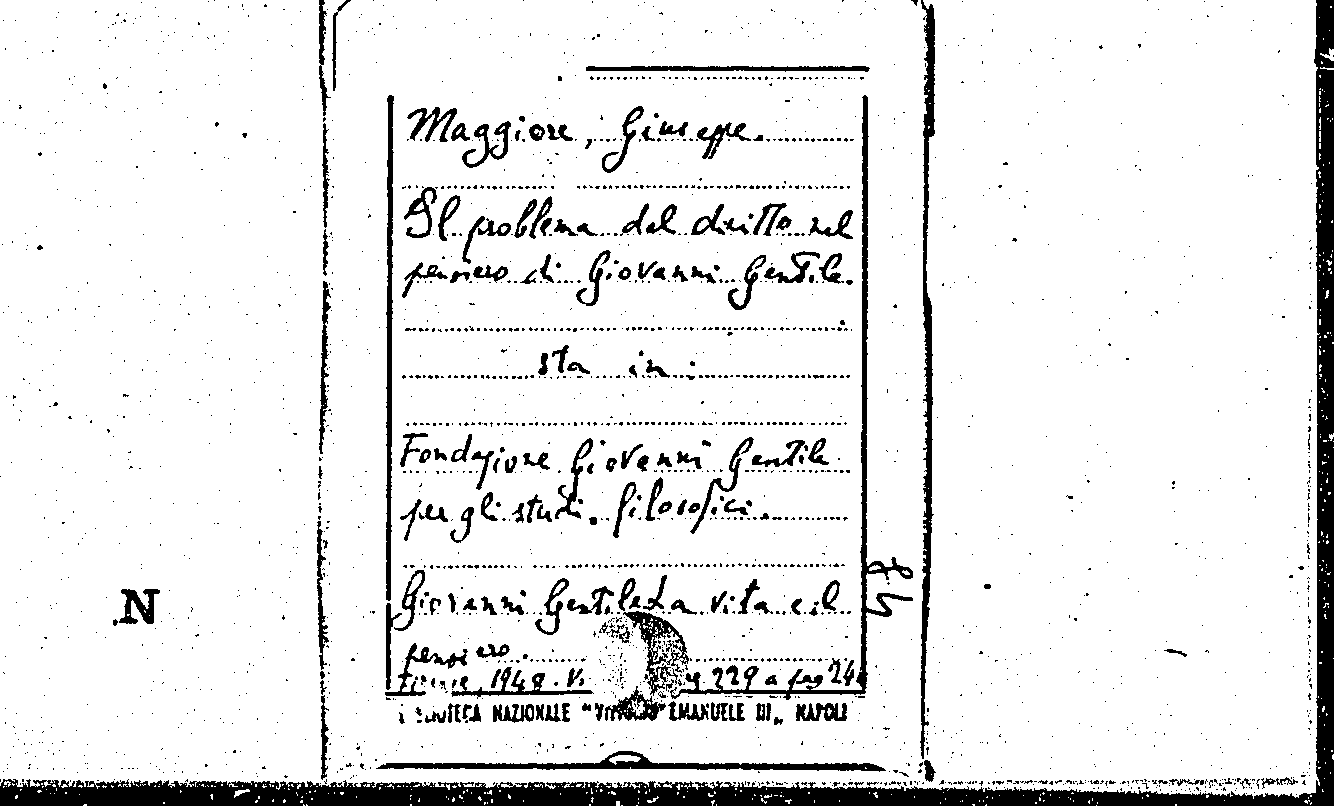 Maggiore, Giuseppe.
Il problema del diritto nel
pensiero di Giovanni Gentile.
sta in:
Fondazione Giovanni Gentile
per gli studi filosofici.
Giovanni Gentile La vita e il
pensiero.
Firenze, 1948. V. 229 a pag
BIBLIOTECA NAZIONALE "VITTORIO EMANUELE III„ NAPOLI
N